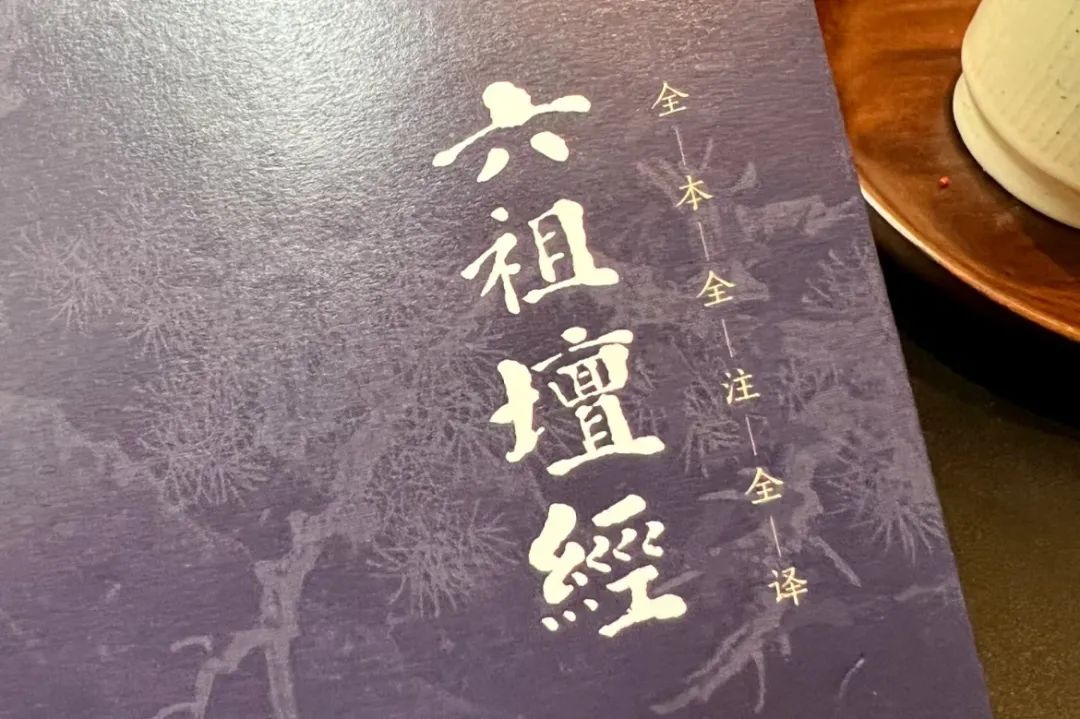 全本全注全译
六祖壇經